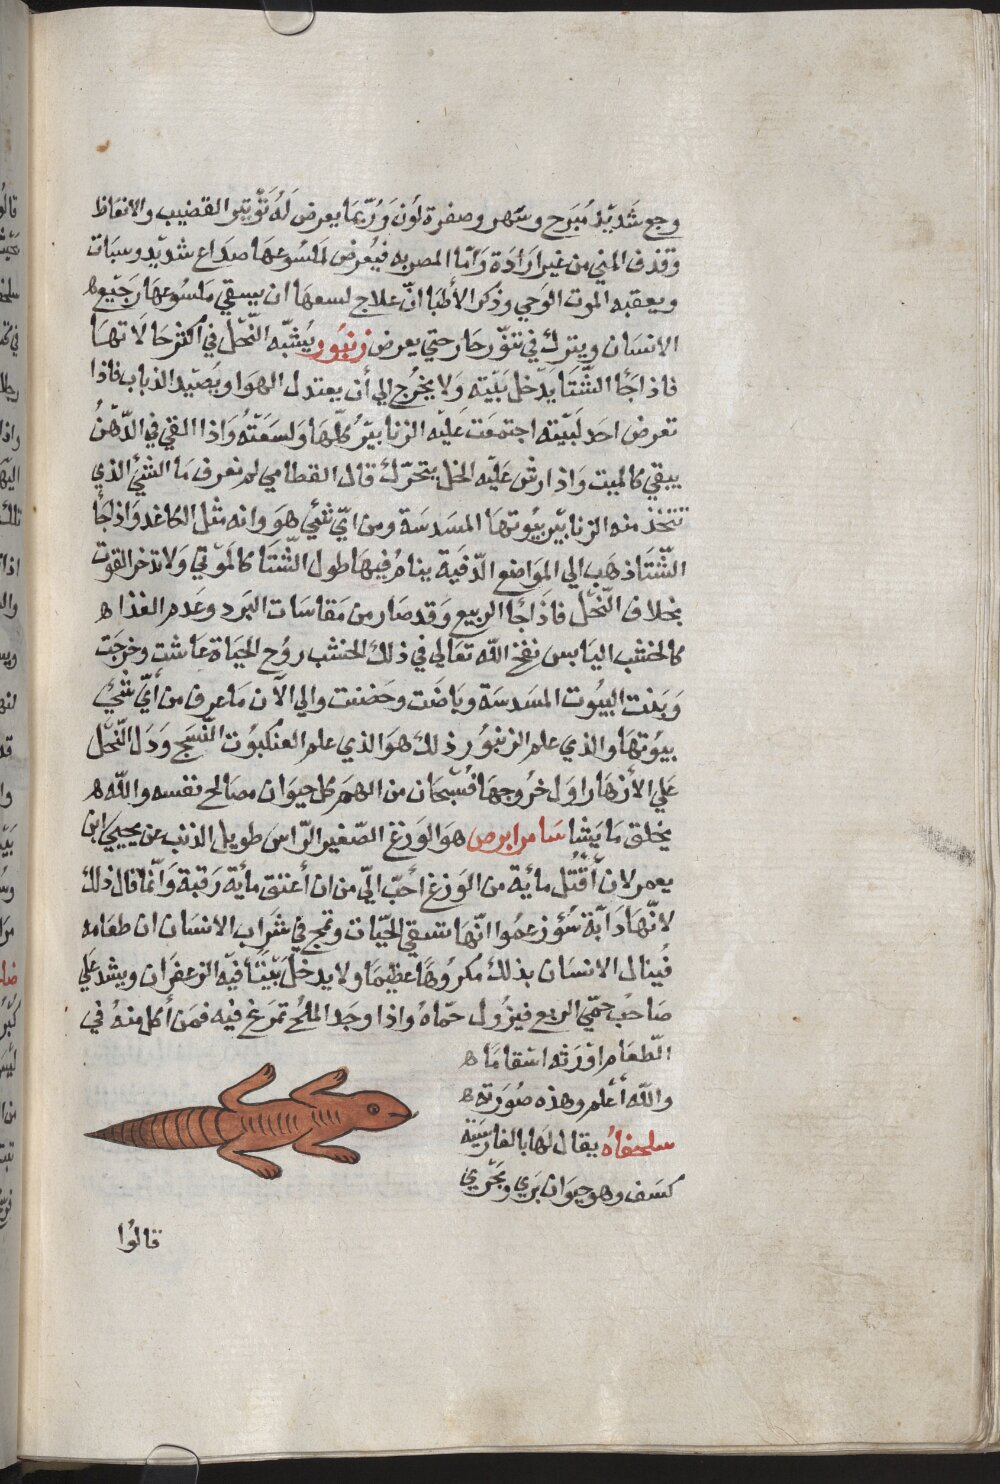 وجع شديد مبرح وسهر وصفرة لون وربما يعرض له توتير القضيب والانعاظ
وقذف المني من غير ارادة واما المصريه فيعرض لملسوعها صداع شديد وسبات
ويعقبه الموت الوحي وذكر الأطبا ان علاج لسعها ان يسقي ملسوعها رجيع ه
الانسان ويترك في تنور حار حتي يعرض زنبور يشبه النحل في اكثر حالاتها
فاذا جأ الشتا يدخل بيته ولا يخرج الي أن يعتدل الهوا ويصيد الذباب فاذا
تعرض احد لبيته اجتمعت عليه الزنابير كلها ولسعته واذا القي في الدهن
يبقي كالميت واذا رش عليه الخل يتحرك قال القطامي لم نعرف ما الشئ الذي
تتخذ منه الزنابير بيوتها المسدسة ومن اي شئي هو وانه مثل الكاغد واذا جأ
الشتا ذهب الي المواضع الدفية ينام فيها طول الشتا كالموتي ولا تدخر القوت
بخلاف النحل فاذا جأ الربيع وقد صار من مقاسات البرد وعدم الغذا ه
كالخشب اليابس نفخ الله تعالي في ذلك الخشب روح الحياة عاشت وخرجت
وبنت البيوت المسدسة وباضت وحضنت والي الآن ما عرف من أي شئ
بيوتها والذي علم الزنبور ذلك هو الذي علم العنكبوت النسج ودل النحل
علي الأزهار اول خروجها فسبحان من الهم كل حيوان مصالح نفسه والله ه
يخلق ما يشا سام ابرص هو الوزغ الصغير الراس طويل الذنب عن يحيي ابن
يعمر لان أقتل مأية من الوزغ أحب الي من ان أعتق مأية رقبة وانما قال ذلك
لانها دابة سؤ زعموا انها تسقي الحيات وتمج في شراب الانسان ان طعامه
فينال الانسان بذلك مكروها عظيما ولا يدخل بيتا فيه الزعفران ويشد علي
صاحب حمي الربع فيزول حماه واذا وجد الملح تمرغ فيه فمن أكل منه في
الطعام اورثه اسقاما ه
والله أعلم وهذه صورته ه
سلحفاه يقال لها بالفارسية
كسف وهو حيوان بري وبحري
قالوا